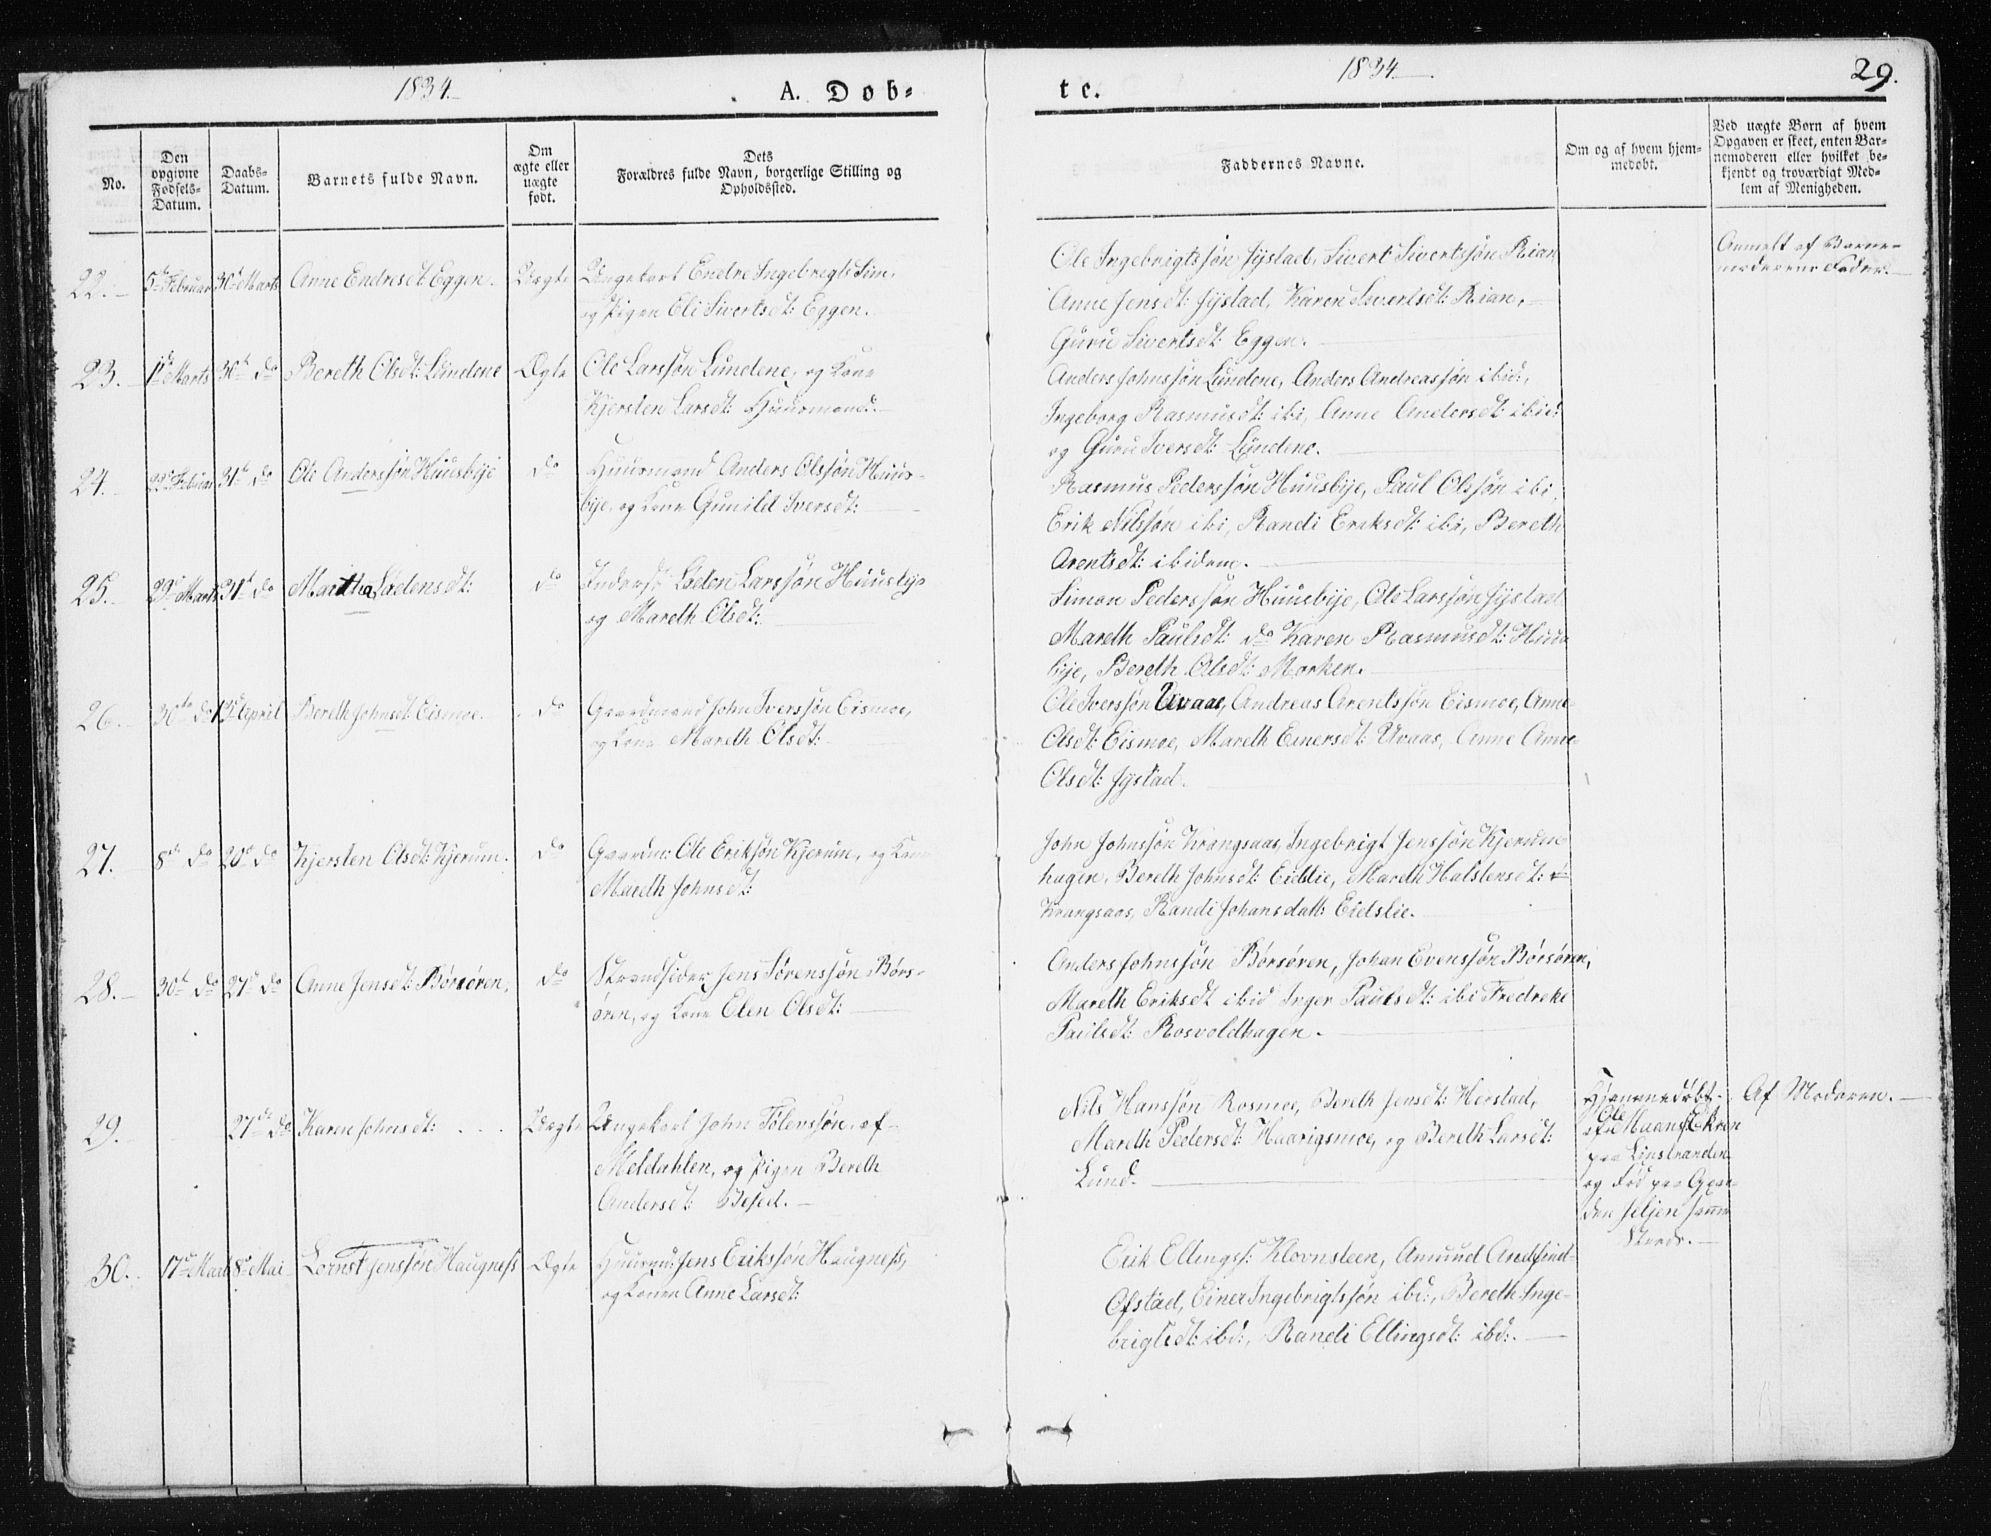 1834.
A. Døb-
te.
1834.
29.
No.
Den opgivne Fødsels-Datum.
Daabs-Datum.
Barnets fulde Navn.
Om ægte eller uægte født.
Dets Forældres fulde Navn, borgerlige Stilling og Opholdssted.
Faddernes Navne.
Om og af hvem hjemmedøbt.
Ved uægte Børn af hvem Opgaven er skeet, enten Barnemoderen eller hvilket bekjendt og troværdigt Medlem af Menigheden.
22. 5te Februar 30te Marts Anne Endresdt: Eggen. Uægte Ungekarl Endre Ingebrigts
og Pigen Eli Sivertsdt: Eggen.
Ole Ingebrigtsøn Jystad, Sivert Sivertsøn Rian
Anne Jensdt: Jystad, Karen Sivertsdt: Rian,
Guru Sivertsdt: Eggen.
Anmelt af Barne-
moderens Fader.
23. 1te Marts 30te do Bereth Olsdt: Lundene Ægte Ole Larssøn Lundene, og Kone
Kjersten Larsdt: Huusmand:
Anders Johnssøn Lundene, Anders Andreassøn ibid:,
Ingeborg Rasmusdt: ibi, Anne Andersdt: ibid:
og Guru Iversdt: Lundene.
24. 22de Februar 31te do Ole Anderssøn Huusbye do Huusmand Anders Olssøn Huus-
bye, og Kone Gunild Iversdt:
Rasmus Pederssøn Huusbye, Paul Olssøn ibi,
Erik Nilssøn ibi, Randi Eriksdt: ibi, Bereth
Arentsdt: ibidem.
25. 29de Marts 31te do Martha Lodensdt: do Inderst Loden Larssøn Huusbye
og Mareth Olsdt:
Simon Pederssøn Huusbye, Ole Larssøn Jystad
Mareth Paulsdt: do Karen Rasmusdt: Huus-
bye, Bereth Olsdt: Morken.
26. 30te do 13de April Bereth Johnsdt: Eismoe. do Gaardmand John Iverssøn Eismoe,
og Kone Mareth Olsdt:
Ole Iverssøn Uvaas, Andreas Arentssøn Eismoe, Anne
Olsdt: Eismoe, Mareth Einersdt: Uvaas, Anne Anne
Olsdt: Jystad.
27. 8de do 20de do Kjersten Olsdt: Kjerum. do Gaardm: Ole Eriksøn Kjerum, og Kone
Mareth Johnsdt:
John Johnssøn Krangsaas, Ingebrigt Jenssøn Kjerum-
hagen, Bereth Johnsdt: Eidslie, Mareth Halstensdt:
Krangsaas, Randi Johansdatt: Eidslie.
28. 30te do 27de do Anne Jensdt: Børsøren, do Strandsider Jens Sørenssøn Børs-
øren, og Kone Elen Olsdt:
Anders Johnssøn Børsøren, Johan Evenssøn Børsøren,
Mareth Eriksdt ibid Inger Paulsdt: ibi Fredreke
Paulsdt: Rosvoldhagen.
29. 27de do Karen Johnsdt: Uægte Ungekarl John Tølenssøn, af
Meldahlen, og Pigen Bereth
Andersdt:
Nils Hanssøn Rosmoe, Bereth Jensdt: Herstad,
Mareth Pedersdt: Haarigsmoe, og Bereth Larsdt:
Lund.
Hjemmedøbt
af Ole
paa Linstranden
og Fød paa
samme
Steds.
Af Moderen.
30. 17de Marts 8de Mai Jenssøn Haugness Ægte Huusmd: Jens Erikssøn Haugness,
og Konen Anne Larsdt:
Erik Ellings: Klovnsteen, Amund
Ofstad, Einer Ingebrigtssøn ibd:, Bereth Inge-
brigtsdt: ibd:, Randi Ellingsdt: ibd:.